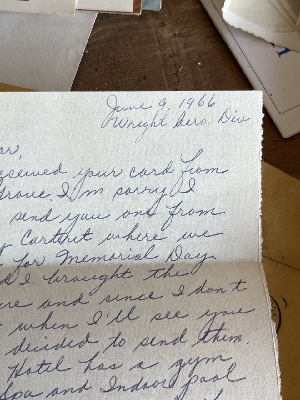 June 9, 1966
Wright Aero. Div
ar,
eceived your card from
rove. I'm sorry I
send you one from
Carteret where we
for Memorial Day
d I brought the
ere and since I don't
when I'll see you
decided to send them.
Hotel has a gym
Spa and Indoor pool